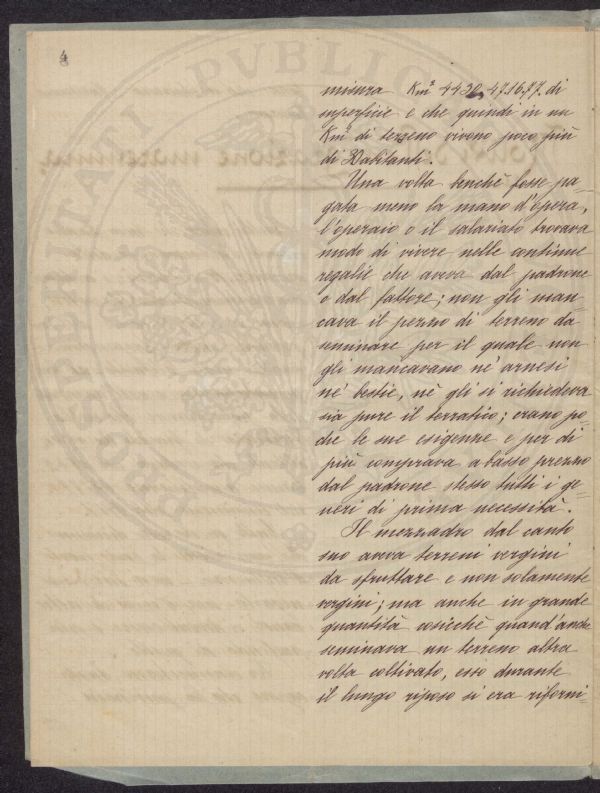 4
misura Km² 4420,47.16.77. di
superficie e che quindi in un
Km² di terreno vivono poco più
di abitanti.
Una volta benchè fosse pa=
gata meno la mano d'opera,
l'operaio o il salariato trovava
modo di vivere nelle continue
regalie che aveva dal padrone
o dal fattore; non gli man=
cava il pezzo di terreno da
seminare per il quale non
gli mancavano nè arnesi
nè bestie, nè gli si richiedeva
sia pure il terratico; erano po=
che le sue esigenze e per di
più comprava a basso prezzo
dal padrone stesso tutti i ge=
neri di prima necessità.
Il mezzadro dal canto
suo aveva terreni vergini
da sfruttare e non solamente
vergini; ma anche in grande
quantità cosicchè quand'anche
seminava un terreno altra
volta coltivato, esso durante
il lungo riposo si era riforni=
PROSPERITATI PUBLICAE